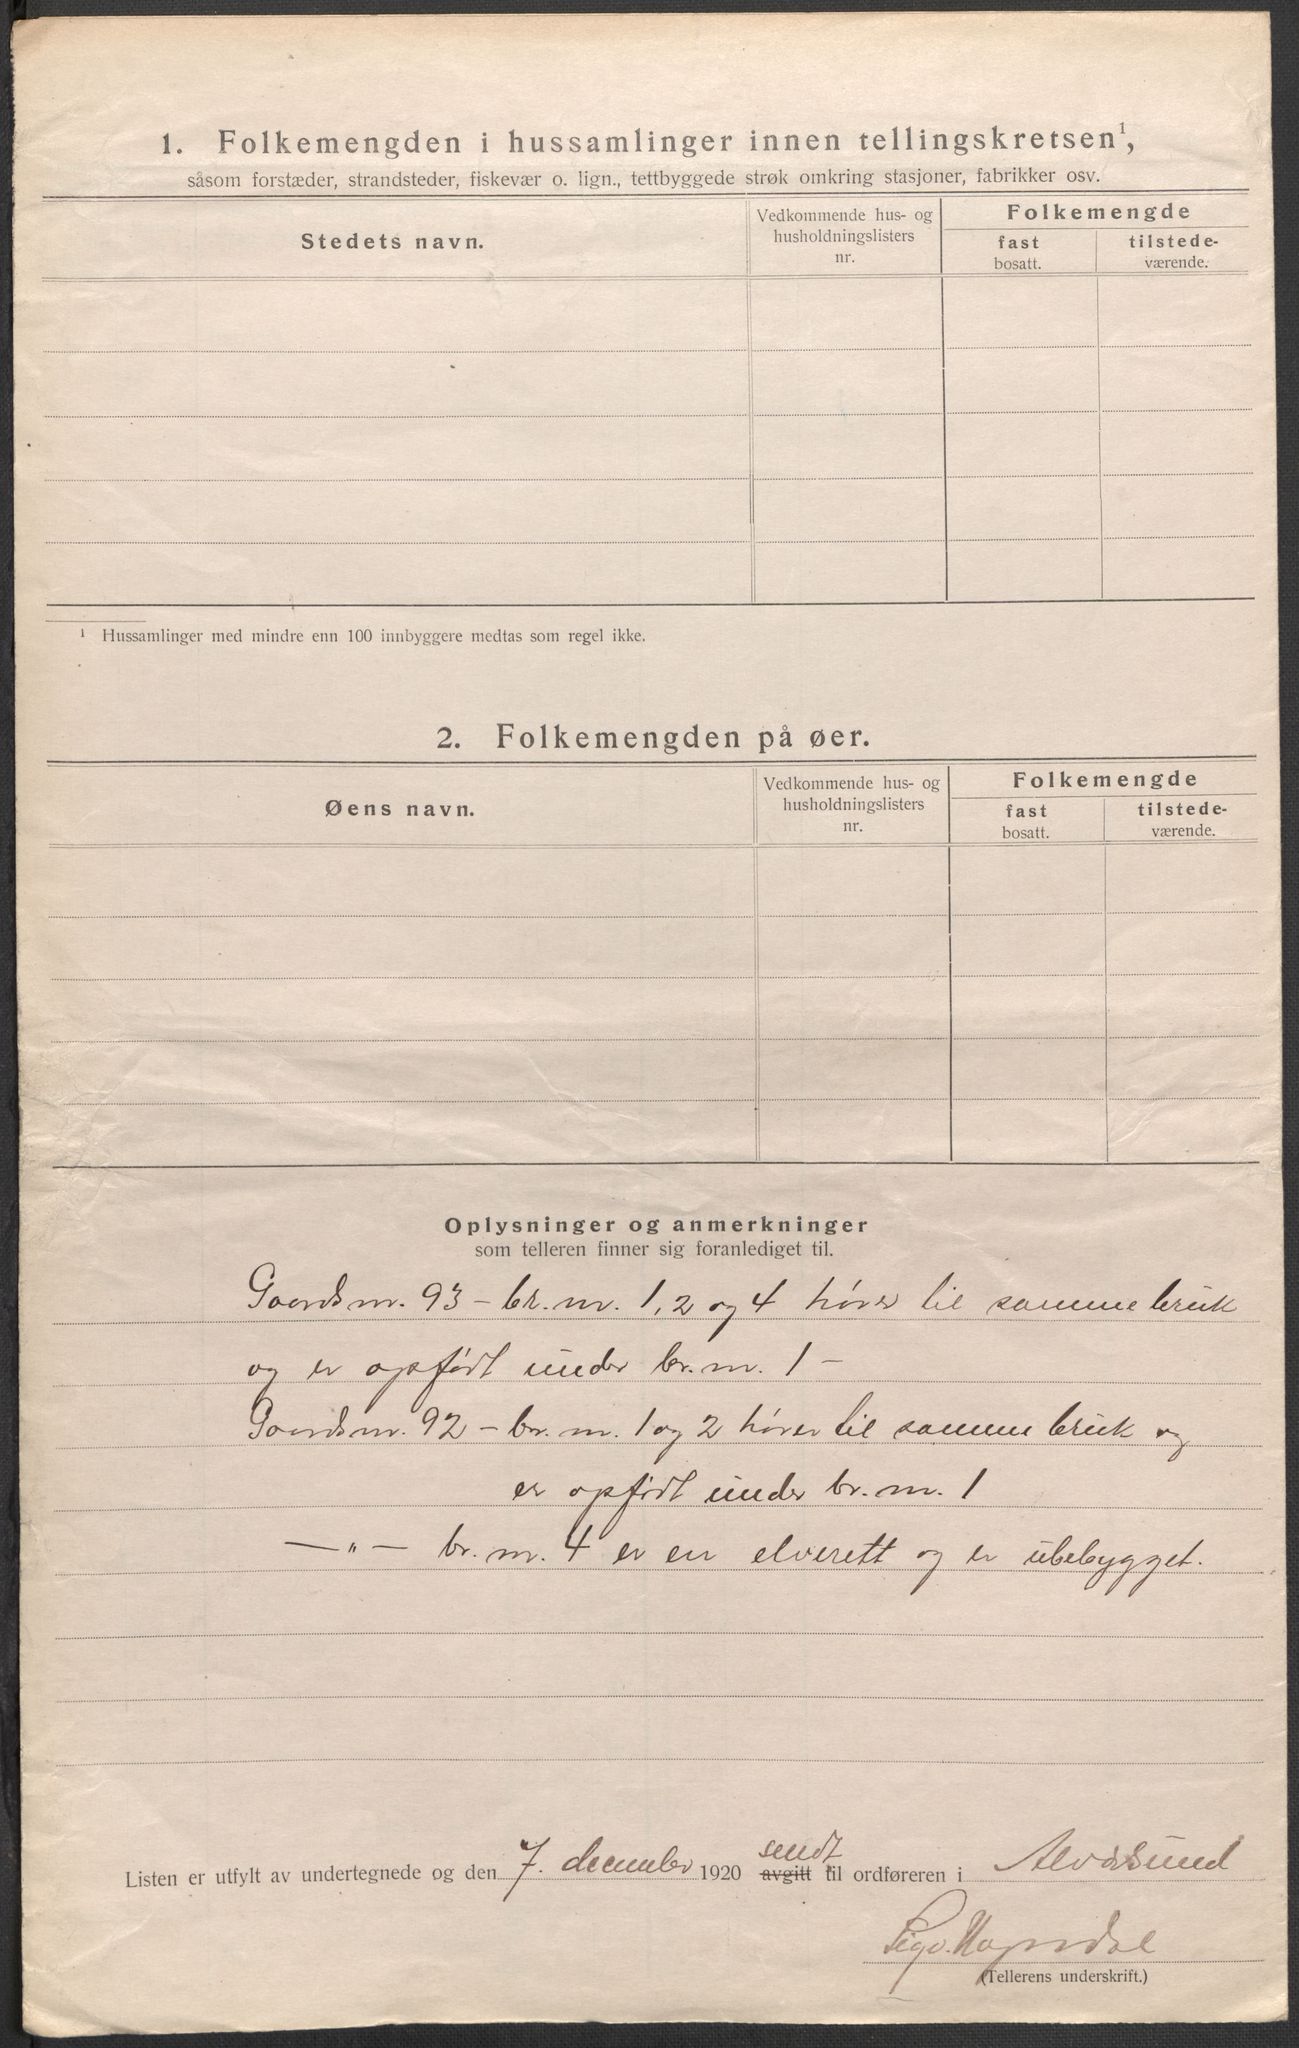 1. Folkemengden i hussamlinger innen tellingskretsen¹,
såsom forstæder, strandsteder, fiskevær o. lign., tettbyggede strøk omkring stasjoner, fabrikker osv.
Stedets navn.
Vedkommende hus- og
husholdningslisters
nr.
Folkemengde
fast
bosatt.
tilstede-
værende.
¹ Hussamlinger med mindre enn 100 innbyggere medtas som regel ikke.
2. Folkemengden på øer.
Øens navn.
Vedkommende hus- og
husholdningslisters
nr.
Folkemengde
fast
bosatt.
tilstede-
værende.
Oplysninger og anmerkninger
som telleren finner sig foranlediget til.
Gaardsnr. 93 – br. nr. 1, 2 og 4 hører til samme bruk
og er opført under br. nr. 1 –
Gaardsnr. 92 – br. nr. 1 og 2 hører til samme bruk og
er opført under br. nr. 1
— " — br. nr. 4 er en elverett og er ubebygget.
Listen er utfylt av undertegnede og den 7. december 1920 avgitt sendt til ordføreren i Alversund
(Tellerens underskrift.)